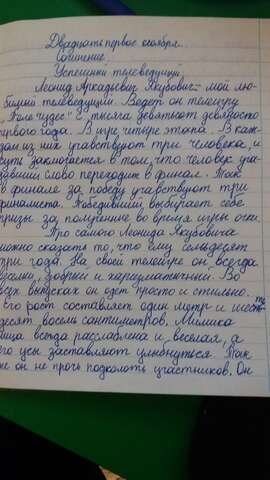 Двадцать первое ноября.
Сочинение.
Успешный телеведущий.
Леонид Аркадьевич Якубович – мой лю-
бимый телеведущий. Ведёт он телеигру
"Поле чудес" с тысяча девятьсот девяносто
первого года. В игре четыре этапа. В каж-
дом из них учавствуют три человека, и
суть заключается в том, что человек, уга-
давший слово переходит в финал. Так
в финале за победу учавствуют три
финалиста. Победивший, выбирает себе
призы за полученные во время игры очки.
Про самого Леонида Якубовича
можно сказать то, что ему семьдесят
три года. На своей телеигре он всегда
весёлый, добрый и харизматичный. Во
всех выпусках он одет просто и стильно.
Его рост составляет один метр и шесть-
десят восемь сантиметров. Мимика
лица всегда расслаблена и весёлая, а
его усы заставляют улыбнуться. Так
же он не прочь подколоть участников. Он